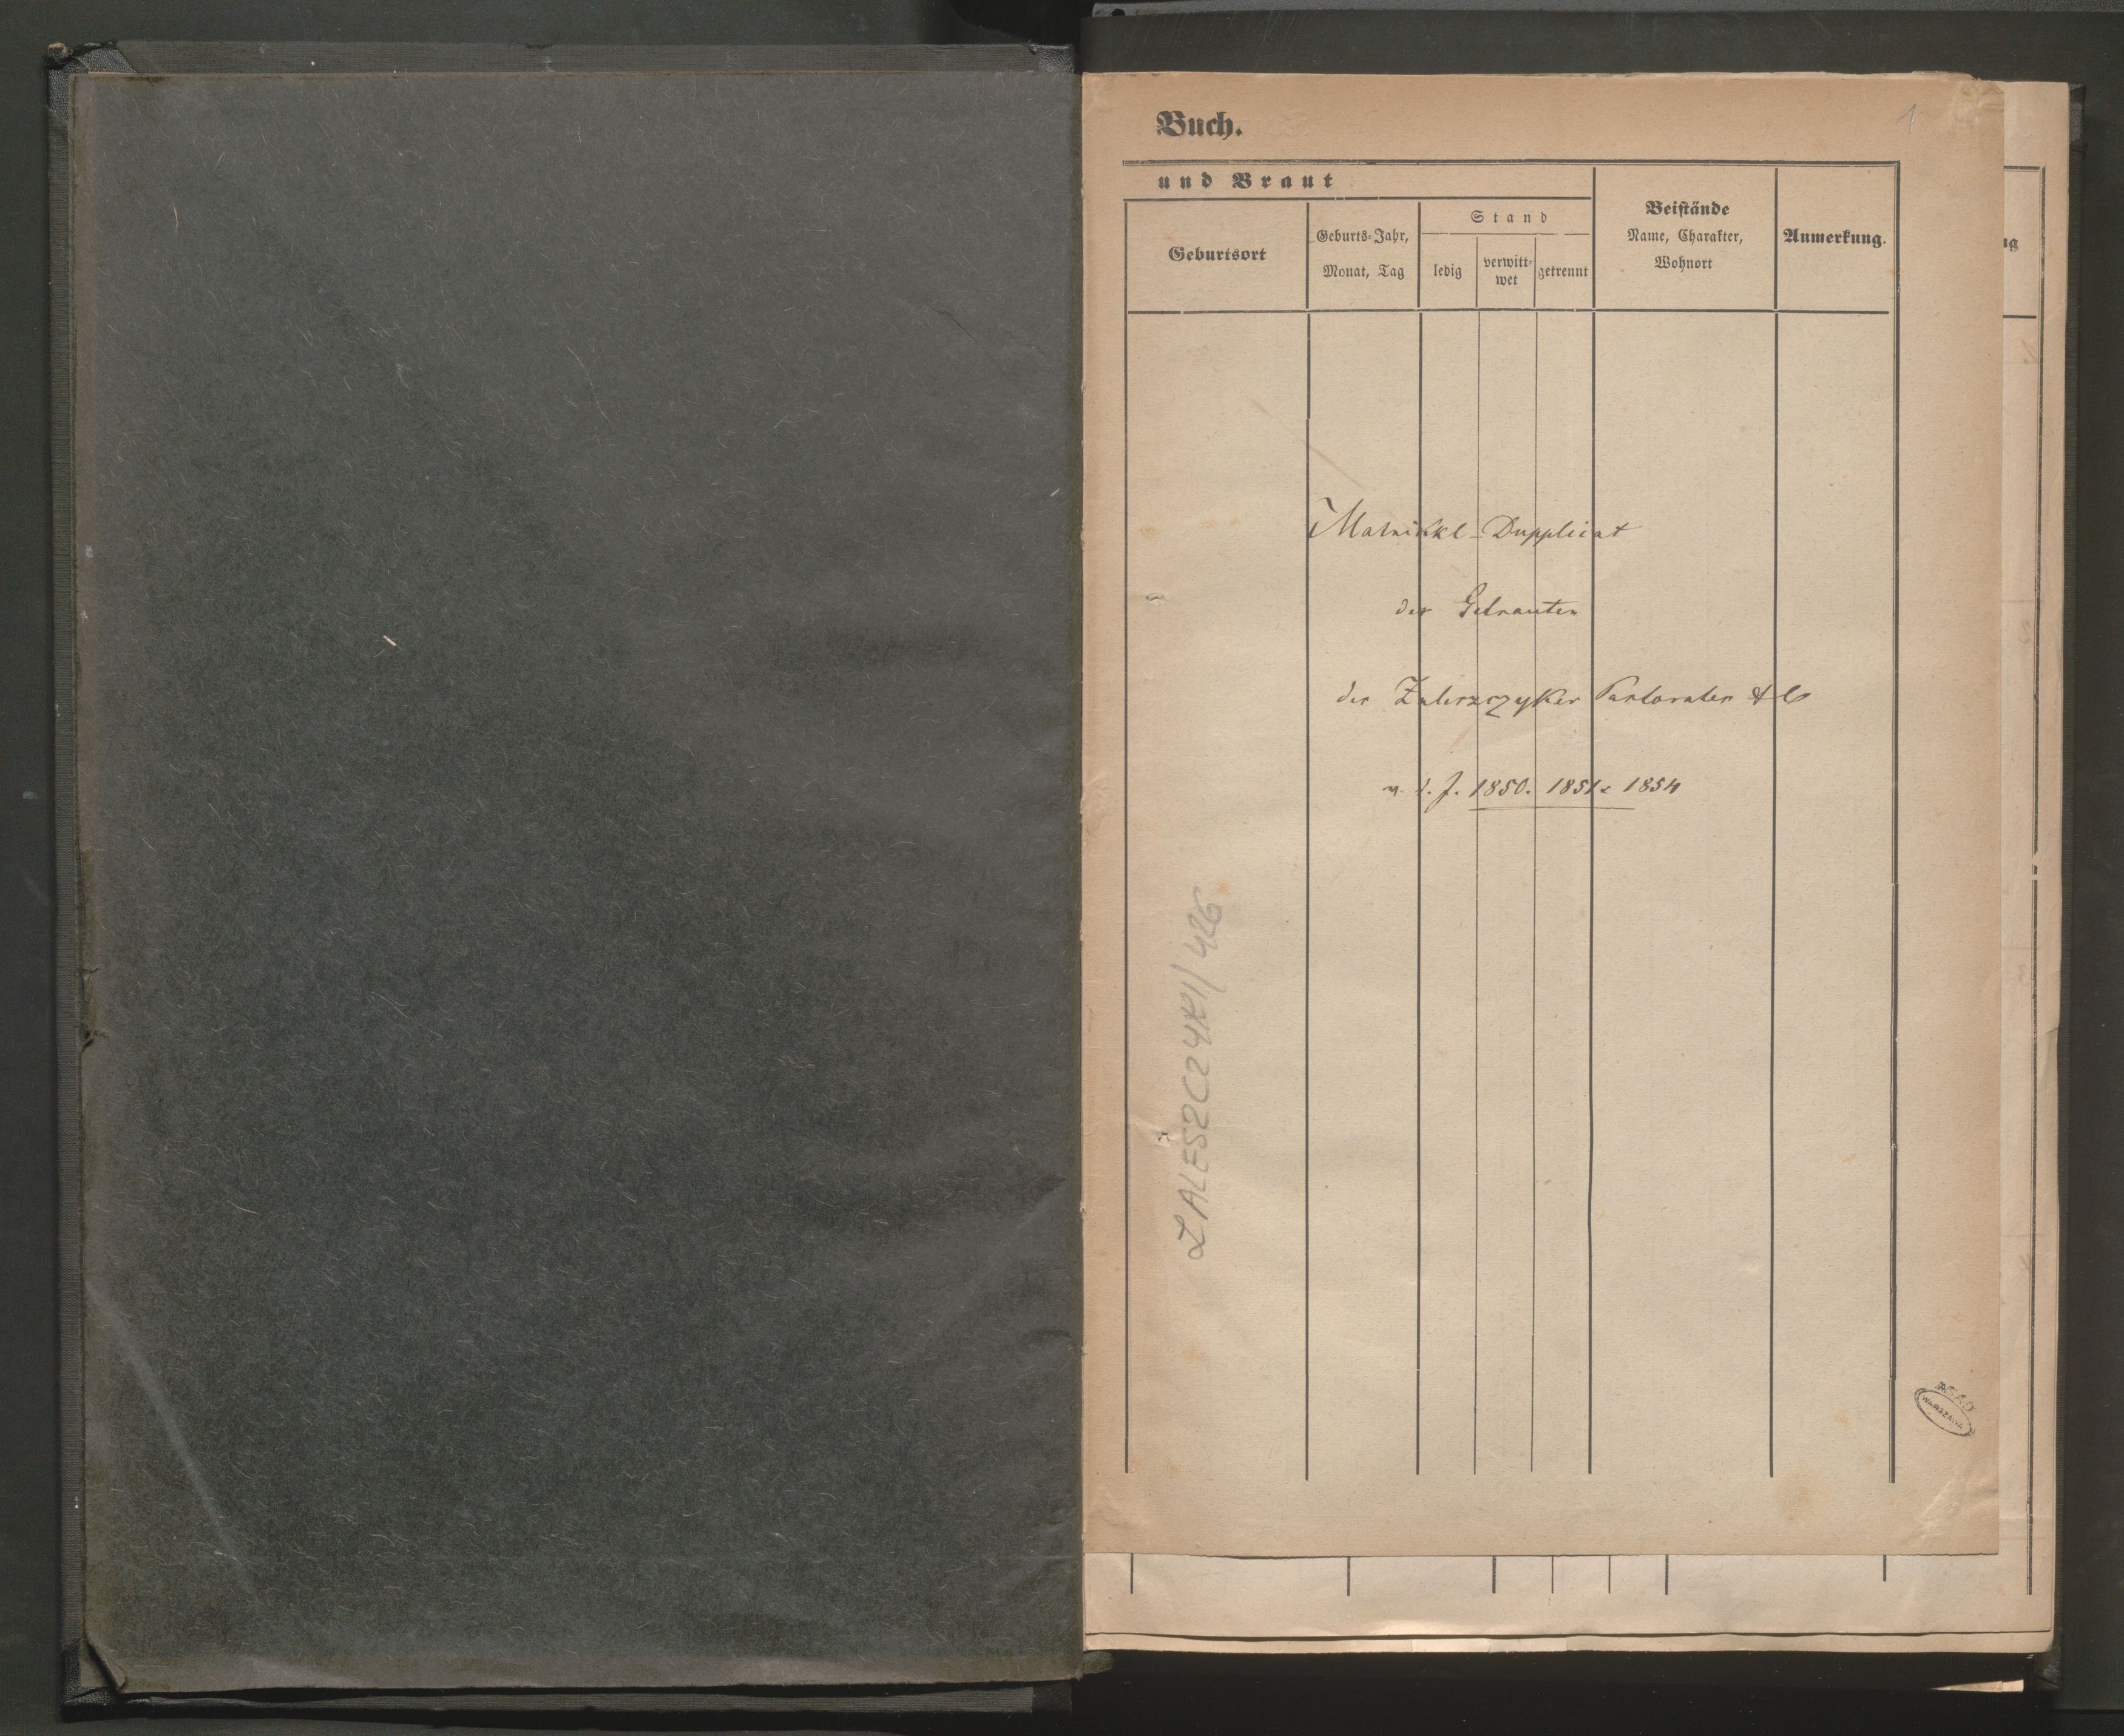 1
Buch.
und Braut
Geburtsort
Geburts-Jahr,
Monat, Tag
Stand
ledig
verwitt-
wet
getrennt
Beistände
Name, Charakter,
Wohnort
Anmerkung.
ng
Matrikel-Dupplicat
der Getrauten
des Zaleszczyker Pastorates
v. d. J. 1850. 1851 1854
ZALESZCZYKI/426
AGAD
WARSZAWA